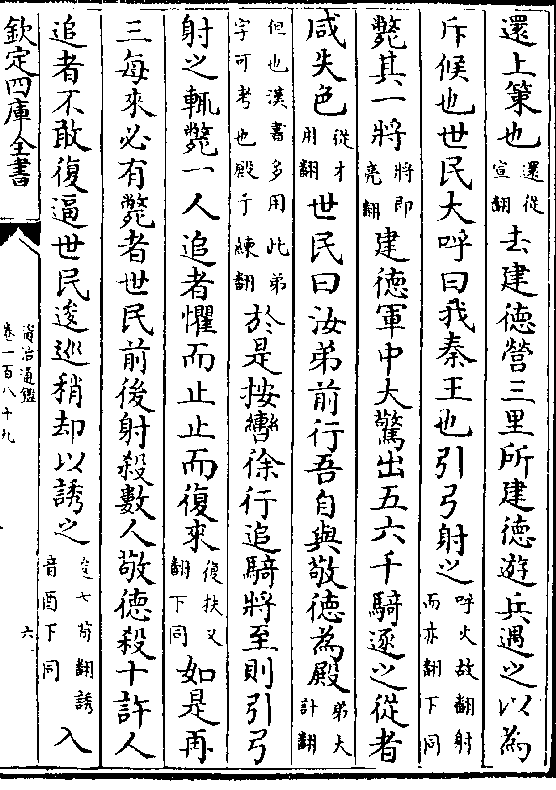 還上策也還從宣翻去建德營三里所建德遊兵遇之以為
斥候也世民大呼曰我秦王也引弓射之呼火故翻射而亦翻下同
斃其一將將即亮翻建德軍中大驚出五六千騎逐之從者
咸失色從才用翻世民曰汝弟前行吾自與敬德為殿弟大計翻
但也漢書多用此弟字可考也殿丁練翻於是按轡徐行追騎將至則引弓
射之輒斃一人追者懼而止止而復來復扶又翻下同如是再
三每來必有斃者世民前後射殺數人敬德殺十許人
追者不敢復逼世民逡巡稍却以誘之逡七荀翻誘音酉下同入
欽定四庫全書
資治通鑑
卷一百八十九
六